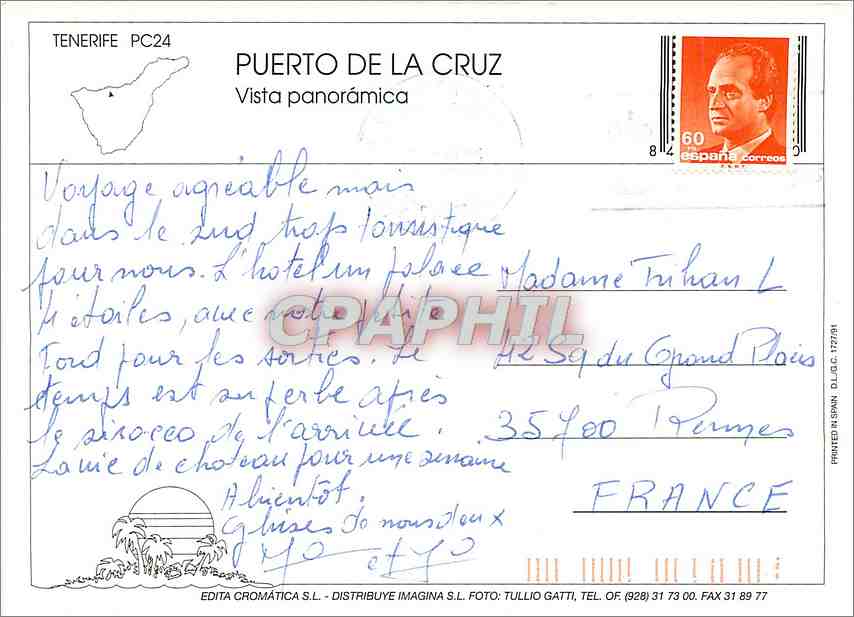 TENERIFE PC24
PUERTO DE LA CRUZ
Vista panorámica
60
españa correos
8
0
Voyage agréable mais
dans le sud trop touristique
pour nous. L'hotel un palace
4 étoiles, avec notre petite
Ford pour les sorties. Le
temps est superbe après
le sirocco de l'arrivée.
La vie de chateau pour une semaine
A bientôt.
Gr bises de nous deux
et
Madame Trihan L
42 Sq du Grand Plais
35700 Rennes
FRANCE
CPAPHIL
PRINTED IN SPAIN D.L./G.C. 1727/91
EDITA CROMÁTICA S.L. - DISTRIBUYE IMAGINA S.L. FOTO: TULLIO GATTI, TEL. OF. (928) 31 73 00. FAX 31 89 77